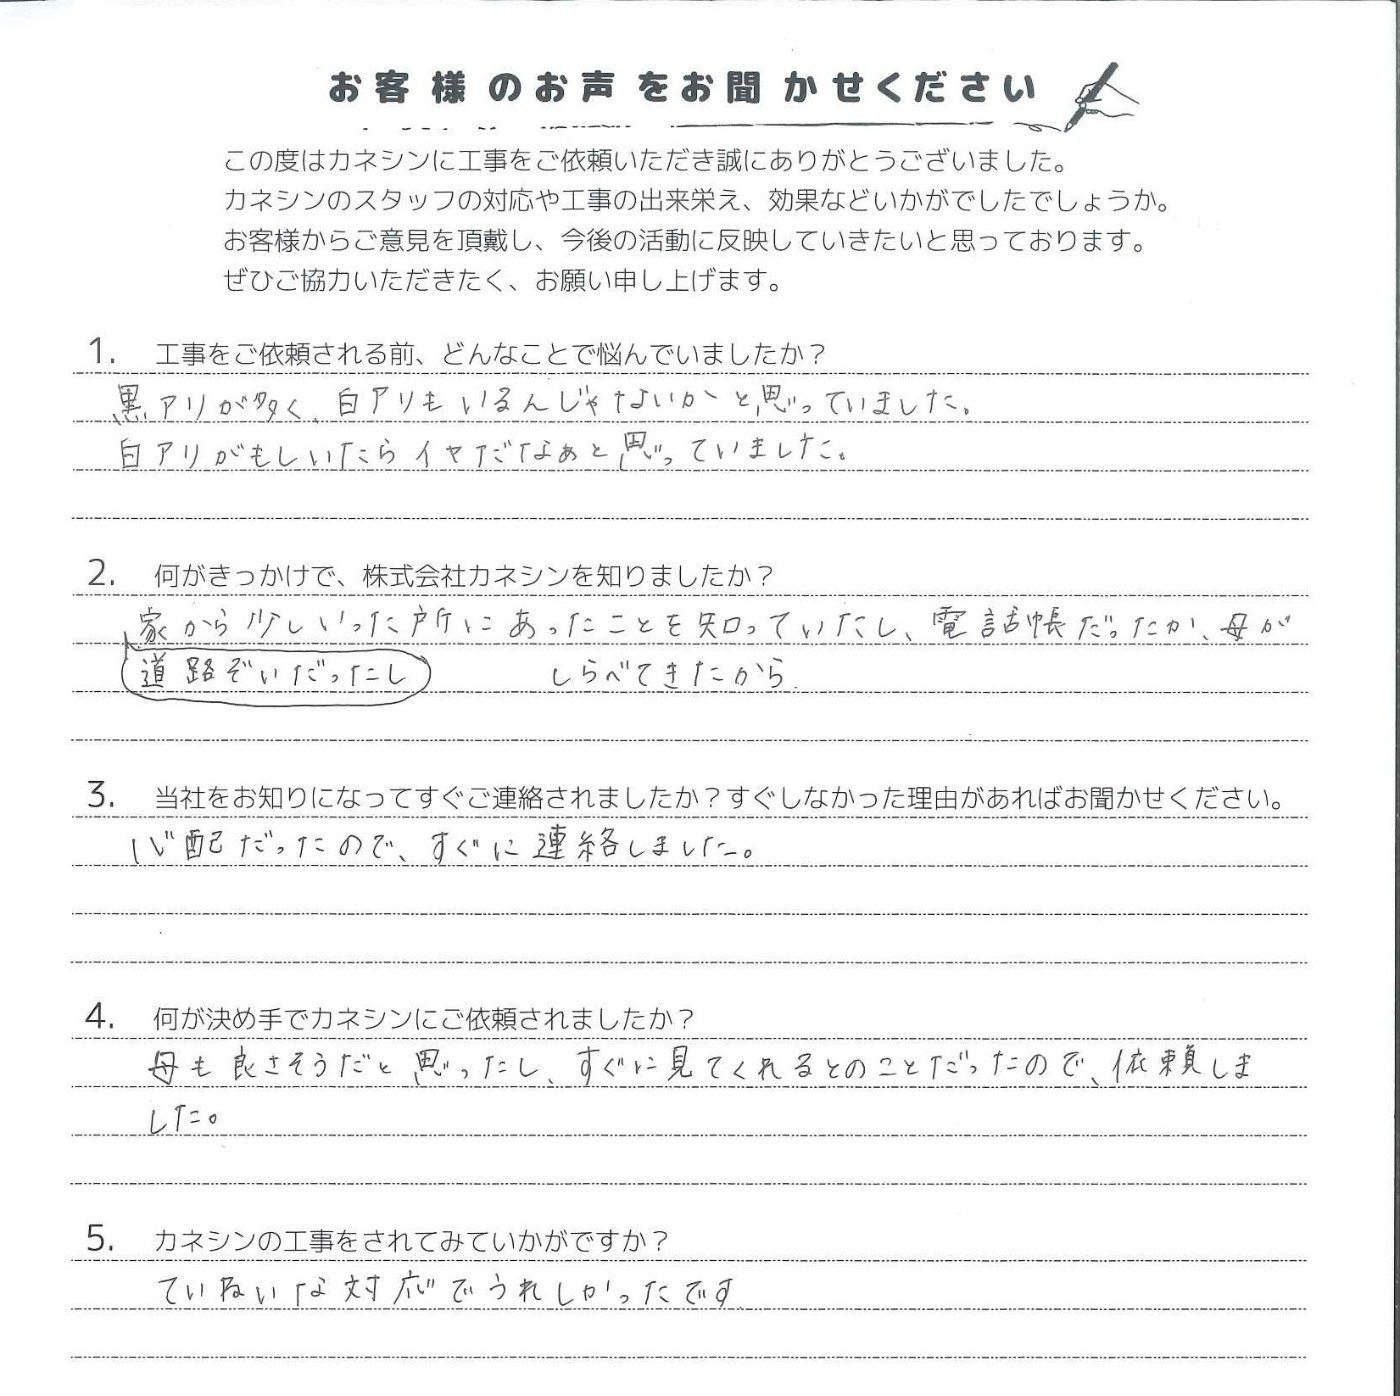 お客様のお声をお聞かせください
この度はカネシンに工事をご依頼いただき誠にありがとうございました。
カネシンのスタッフの対応や工事の出来栄え、効果などいかがでしたでしょうか。
お客様からご意見を頂戴し、今後の活動に反映していきたいと思っております。
ぜひご協力いただきたく、お願い申し上げます。
1. 工事をご依頼される前、どんなことで悩んでいましたか？
黒アリが多く、白アリもいるんじゃないかと思っていました。
白アリがもしいたらイヤだなぁと思っていました。
2. 何がきっかけで、株式会社カネシンを知りましたか？
家から少しいった所にあったことを知っていたし、電話帳だったか、母が
道路ぞいだったし しらべてきたから
3. 当社をお知りになってすぐご連絡されましたか？すぐしなかった理由があればお聞かせください。
心配だったので、すぐに連絡しました。
4. 何が決め手でカネシンにご依頼されましたか？
母も良さそうだと思ったし、すぐに見てくれるとのことだったので、依頼しま
した。
5. カネシンの工事をされてみていかがですか？
ていねいな対応でうれしかったです